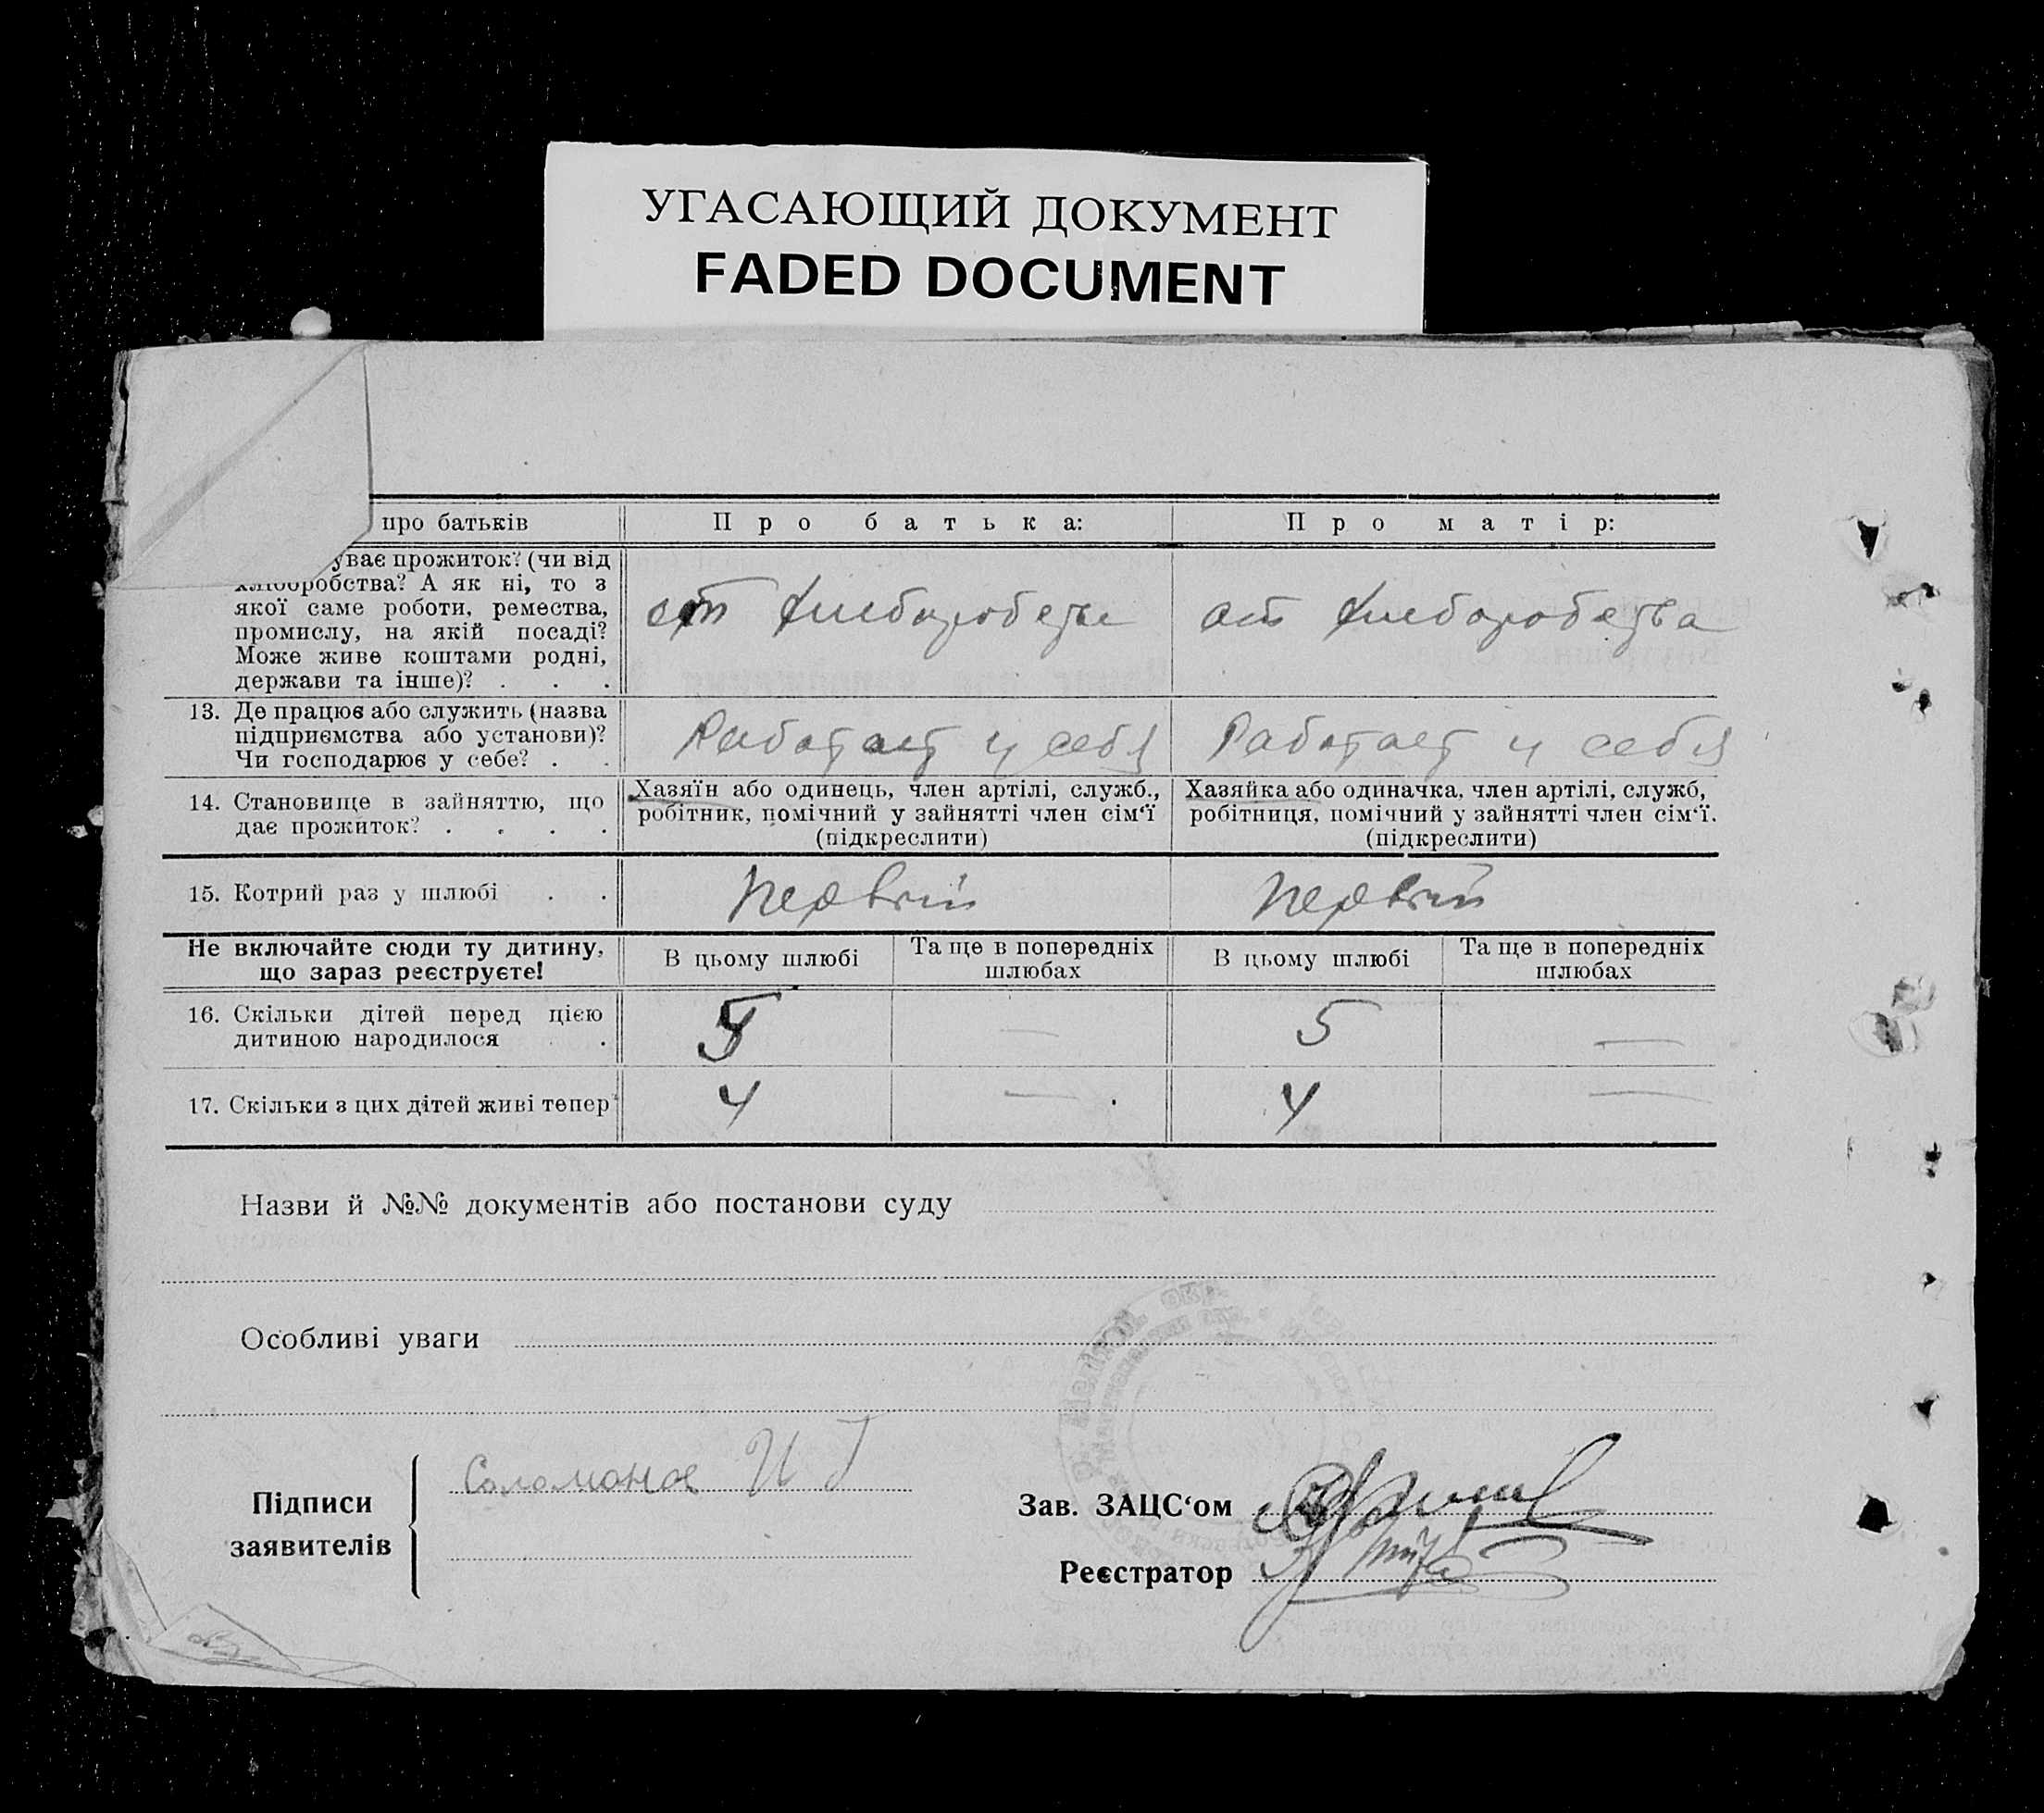 УГАСАЮЩИЙ ДОКУМЕНТ
FADED DOCUMENT
про батьків
Про батька:
Про матір:
ує прожиток? (чи від
хліборобства? А як ні, то з
якої саме роботи, ремества,
промислу, на якій посаді?
Може живе коштами родні,
держави та інше)? . . .
от хлеборобства
от хлеборобства
13. Де працює або служить (назва
підприємства або установи)?
Чи господарює у себе? . .
Работает у себя
Работает у себя
14. Становище в зайняттю, що
дає прожиток? . . . .
Хазяїн або одинець, член артілі, служб.,
робітник, помічний у зайнятті член сім‘ї
(підкреслити)
Хазяйка або одиначка, член артілі, служб,
робітниця, помічний у зайнятті член сім‘ї.
(підкреслити)
15. Котрий раз у шлюбі . .
Первый
Первый
Не включайте сюди ту дитину,
що зараз реєструєте!
В цьому шлюбі
Та ще в попередніх
шлюбах
В цьому шлюбі
Та ще в попередніх
шлюбах
16. Скільки дітей перед цією
дитиною народилося .
5
—
5
—
17. Скільки з цих дітей живі тепер
4
—
4
—
Назви й №№ документів або постанови суду
Особливі уваги
Підписи
заявителів
Соломона И Г
Зав. ЗАЦС‘ом
Реєстратор